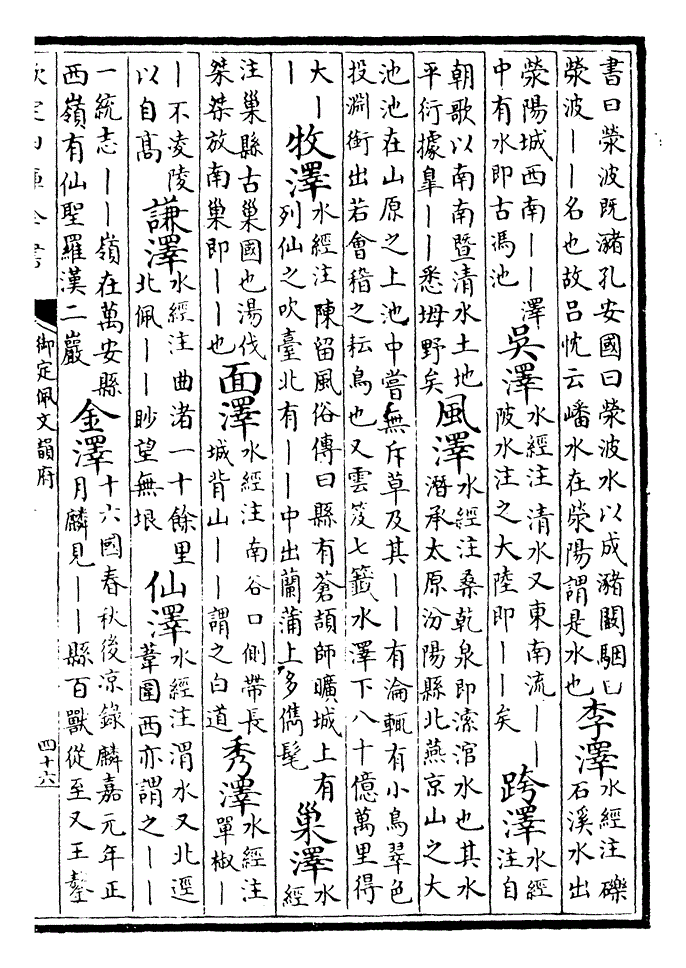 書曰滎波既瀦孔安國曰滎波水以成瀦闞駰曰
滎波——名也故呂忱云嶓水在滎陽謂是水也
李澤
水經注礫
石溪水出
滎陽城西南——澤
中有水即古馮池
吳澤
水經注清水又東南流——
陂水注之大陸即——矣
跨澤
水經
注自
朝歌以南南暨清水土地
平衍據臯——悉坶野矣
風澤
水經注桑乾泉即溹涫水也其水
潛承太原汾陽縣北燕京山之大
池池在山原之上池中嘗無斥草及其——有淪輒有小鳥翠色
投淵銜出若會稽之耘鳥也又雲笈七籤水澤下八十億萬里得
大—
—
牧澤
水經注陳留風俗傳曰縣有蒼頡師曠城上有
列仙之吹臺北有——中出蘭蒲上多儁髦
巢澤
水
經
注巢縣古巢國也湯伐
桀桀放南巢即——也
面澤
水經注南谷口側帶長
城背山——謂之白道
秀澤
水經注
單椒—
—不凌陵
以自高
謙澤
水經注曲渚一十餘里
北佩——眇望無垠
仙澤
水經注渭水又北逕
葦圃西亦謂之——
一統志——嶺在萬安縣
西嶺有仙聖羅漢二巖
金澤
十六國春秋後涼錄麟嘉元年正
月麟見——縣百獸從至又王鏊
欽定四庫全書
御定佩文韻府
四十六